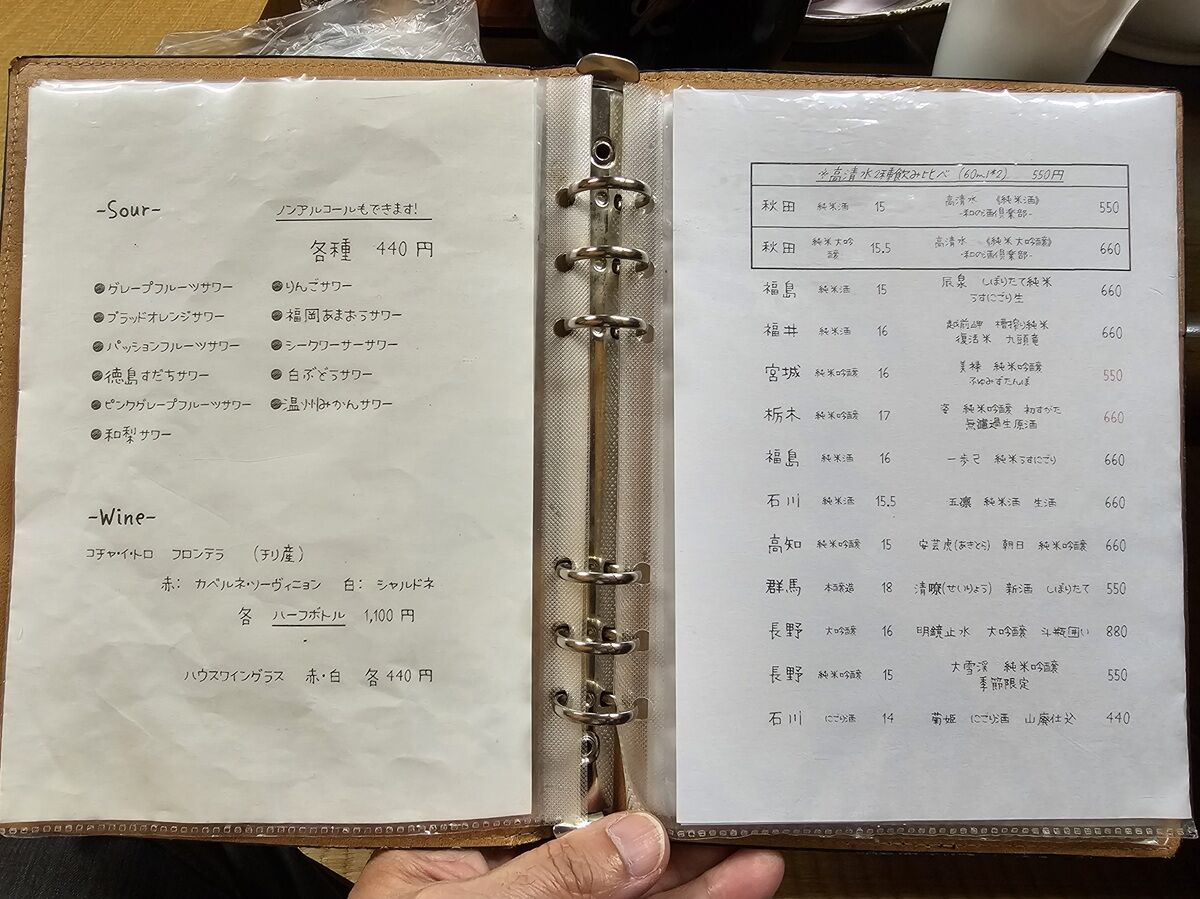 -Sour-
ノンアルコールもできます!
各種 440円
●グレープフルーツサワー ●りんごサワー
●ブラッドオレンジサワー ●福岡あまおうサワー
●パッションフルーツサワー ●シークワーサーサワー
●徳島すだちサワー ●白ぶどうサワー
●ピンクグレープフルーツサワー ●温州みかんサワー
●和梨サワー
-Wine-
コチャ・イ・トロ フロンテラ (チリ産)
赤: カベルネ・ソーヴィニョン 白: シャルドネ
各 ハーフボトル 1,100円
ハウスワイングラス 赤・白 各440円
☆高清水2種飲み比べ (60ml*2) 550円
秋田 純米酒 15 高清水 《純米酒》 550
-和の酒倶楽部-
秋田 純米大吟醸 15.5 高清水 《純米大吟醸》 660
-和の酒倶楽部-
福島 純米酒 15 辰泉 しぼりたて純米 660
うすにごり生
福井 純米酒 16 越前岬 槽搾り純米 660
復活米 九頭竜
宮城 純米吟醸 16 美禄 純米吟醸 550
ふゆみずたんぼ
栃木 純米吟醸 17 姿 純米吟醸 初すがた 660
無濾過生原酒
福島 純米酒 16 一歩己 純米うすにごり 660
石川 純米酒 15.5 五凛 純米酒 生酒 660
高知 純米吟醸 15 安芸虎(あきとら) 朝日 純米吟醸 660
群馬 本醸造 18 清嘹(せいりょう) 新酒 しぼりたて 550
長野 大吟醸 16 明鏡止水 大吟醸 斗瓶囲い 880
長野 純米吟醸 15 大雪渓 純米吟醸 550
季節限定
石川 にごり酒 14 菊姫 にごり酒 山廃仕込 440